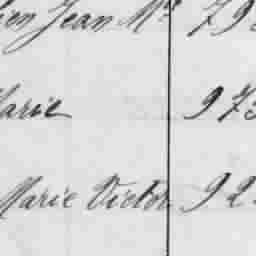 Jean Mie 79
Marie 973
Marie Victor 92